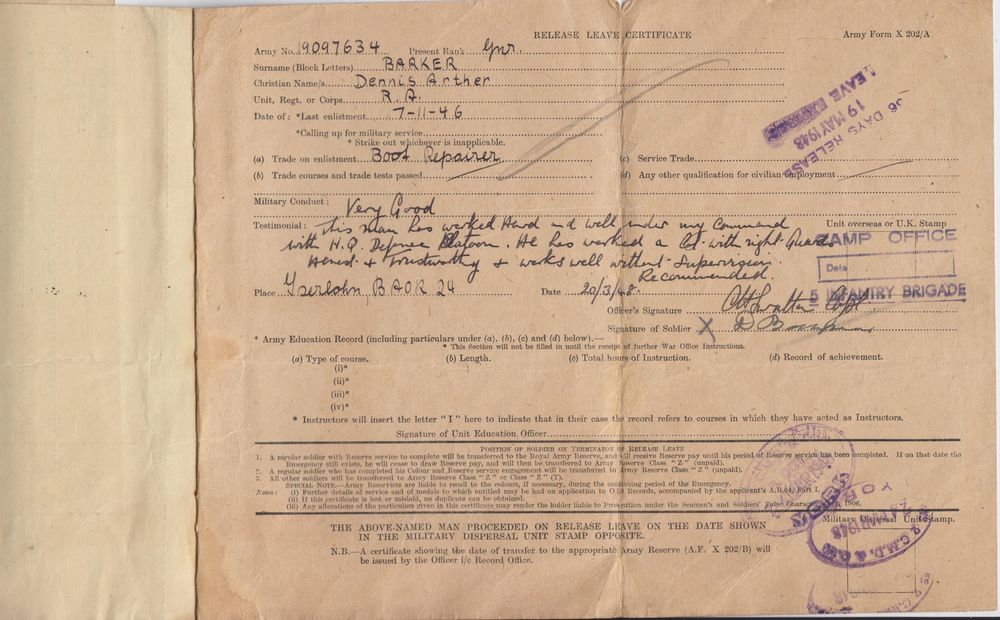 RELEASE LEAVE CERTIFICATE Army Form X 202/A
Army No. 19097634 Present Rank Gnr.
Surname (Block Letters) BARKER
Christian Name/s Dennis Arther
Unit, Regt. or Corps R.A.
Date of : *Last enlistment 7-11-46
*Calling up for military service
* Strike out whichever is inapplicable.
56 DAYS RELEASE
LEAVE EXPIRES
19 MAY 1948
(a) Trade on enlistment Boot Repairer (c) Service Trade
(b) Trade courses and trade tests passed (d) Any other qualification for civilian employment
Military Conduct : Very Good
Testimonial : This man has worked Hard and well under my Command Unit overseas or U.K. Stamp
with H.Q. Defence Platoon. He has worked a lot with night Guards
Honest + trustworthy + works well without Supervision.
Recommended.
CAMP OFFICE
Date
5 INFANTRY BRIGADE
Place Yserlohn, BAOR 24 Date 20/3/48.
Officer's Signature Capt.
Signature of Soldier X D Barker
* Army Education Record (including particulars under (a), (b), (c) and (d) below).—
* This Section will not be filled in until the receipt of further War Office Instructions.
(a) Type of course. (b) Length. (c) Total hours of Instruction. (d) Record of achievement.
(i)*
(ii)*
(iii)*
(iv)*
* Instructors will insert the letter "I" here to indicate that in their case the record refers to courses in which they have acted as Instructors.
Signature of Unit Education Officer
POSITION OF SOLDIER ON TERMINATON OF RELEASE LEAVE
1. A regular soldier with Reserve service to complete will be transferred to the Royal Army Reserve, and will receive Reserve pay until his period of Reserve service has been completed. If on that date the
Emergency still exists, he will cease to draw Reserve pay, and will then be transferred to Army Reserve Class "Z" (unpaid).
2. A regular soldier who has completed his Colour and Reserve service engagement will be transferred to Army Reserve Class "Z" (unpaid).
3. All other soldiers will be transferred to Army Reserve Class "Z" or Class "Z" (T).
SPECIAL NOTE.—Army Reservists are liable to recall to the colours, if necessary, during the continuing period of the Emergency.
Notes : (i) Further details of service and of medals to which entitled may be had on application to O i/c Records, accompanied by the applicant's A.B.64, Part I.
(ii) If this certificate is lost or mislaid, no duplicate can be obtained.
(iii) Any alterations of the particulars given in this certificate may render the holder liable to Prosecution under the Seamen's and Soldiers' False Characters Act, 1906.
Military Dispersal Unit stamp.
THE ABOVE-NAMED MAN PROCEEDED ON RELEASE LEAVE ON THE DATE SHOWN
IN THE MILITARY DISPERSAL UNIT STAMP OPPOSITE.
N.B.—A certificate showing the date of transfer to the appropriate Army Reserve (A.F. X 202/B) will
be issued by the Officer i/c Record Office.
YORK
24 MAR 1948
2 C.M.D. &